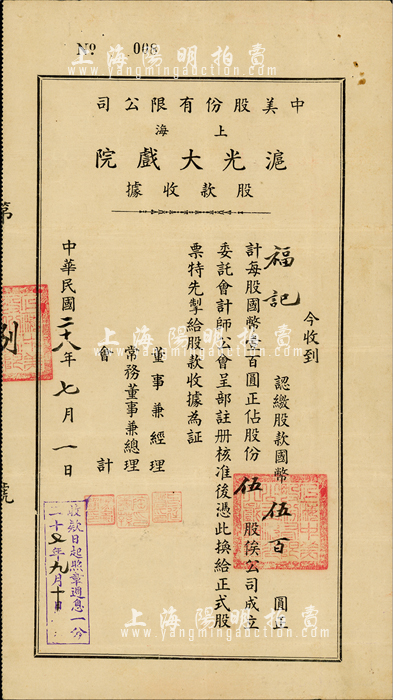 No 008
中美股份有限公司
上海
滬光大戲院
股款收據
今收到
福記 認繳股款國幣伍百圓正
計每股國幣壹百圓正佔股份伍股俟公司成立
委託會計師公會呈部註册核准後憑此換給正式股
票特先掣給股款收據為証
董事兼經理
常務董事兼總理
會計
中華民國二十八年七月一日
股款日起照章週息一分
年九月十
第
號
上海陽明拍賣
www.yangmingauction.com
上海陽明拍賣
www.yangmingauction.com
上海陽明拍賣
www.yangmingauction.com